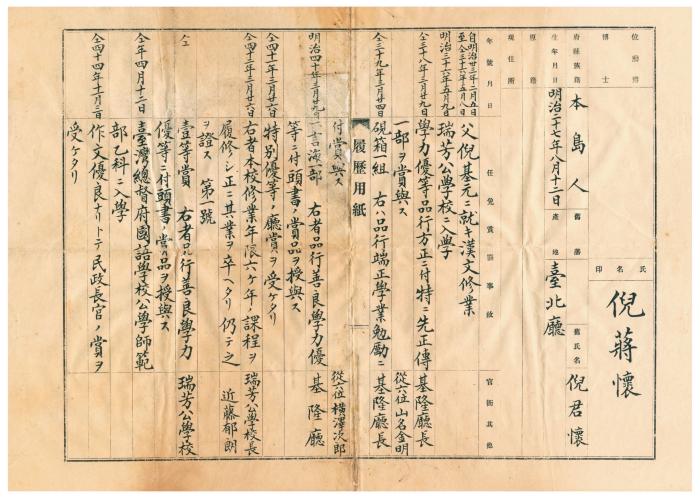 位勲爵
博士
府縣族籍 本島人
舊藩
生年月日 明治二十七年八月十二日
產地 臺北廳
原籍
現住所
氏名印 倪蔣懷
舊氏名 倪君懷
年號月日
任免賞罰事故
官衙其他
自明治卅三年二月五日
至仝三十六年五月八日 父倪基元ニ就キ漢文修業
明治三十六年五月九日 瑞芳公學校ニ入學
仝三十八年三月廿九日 學力優等品行方正ニ付特ニ先正傳 基隆廳長
一部ヲ賞與ス 從六位山名金明
仝三十九年三月廿四日 硯箱一組 右ハ品行端正學業勉勵ニ 基隆廳長
履歷用紙
付賞與ス 從六位橫澤次郎
明治四十年三月廿九日 一言海一部 右者品行善良學力優 基隆廳
等ニ付頭書ノ賞品ヲ授與ス
仝四十一年三月廿六日 特別優等ノ廳賞ヲ受ケタリ
仝四十二年三月廿六日 右者本校修業年限六ケ年ノ課程ヲ 瑞芳公學校長
履修シ正ニ其業ヲ卒ヘタリ仍テ之 近藤郁朗
ヲ證ス 第一號
仝 壹等賞 右者品行善良學力 瑞芳公學校
優等ニ付頭書ノ賞品ヲ授與ス
仝年四月十二日 臺灣總督府國語學校公學師範
部乙科ニ入學
仝四十四年十月二日 作文優良ナリトテ民政長官ノ賞ヲ
受ケタリ